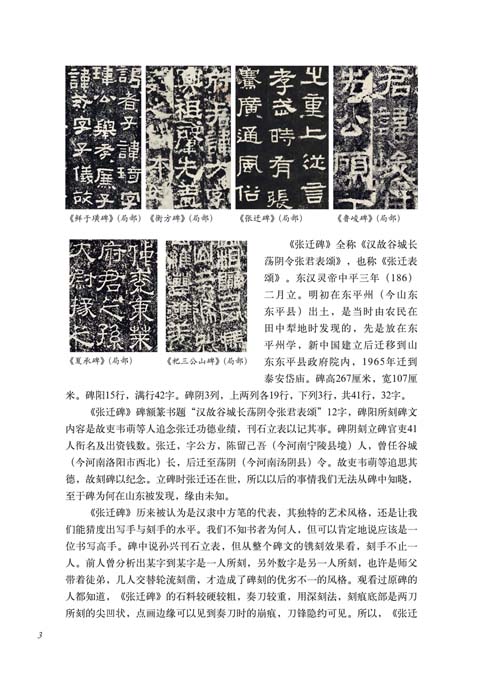 《鲜于璜碑》(局部)
《衡方碑》(局部)
《张迁碑》(局部)
《鲁峻碑》(局部)
《夏承碑》(局部)
《祀三公山碑》(局部)
《张迁碑》全称《汉故谷城长
荡阴令张君表颂》，也称《张迁表
颂》。东汉灵帝中平三年（186）
二月立。明初在东平州（今山东
东平县）出土，是当时由农民在
田中犁地时发现的，先是放在东
平州学，新中国建立后迁移到山
东东平县政府院内，1965年迁到
泰安岱庙。碑高267厘米，宽107厘
米。碑阳15行，满行42字。碑阴3列，上两列各19行，下列3行，共41行，32字。
《张迁碑》碑额篆书题“汉故谷城长荡阴令张君表颂”12字，碑阳所刻碑文
内容是故吏韦萌等人追念张迁功德业绩，刊石立表以记其事。碑阴刻立碑官吏41
人衔名及出资钱数。张迁，字公方，陈留己吾（今河南宁陵县境）人，曾任谷城
（今河南洛阳市西北）长，后迁至荡阴（今河南汤阴县）令。故吏韦萌等追思其
德，故刻碑以纪念。立碑时张迁还在世，所以以后的事情我们无法从碑中知晓，
至于碑为何在山东被发现，缘由未知。
《张迁碑》历来被认为是汉隶中方笔的代表，其独特的艺术风格，还是让我
们能猜度出写手与刻手的水平。我们不知书者为何人，但可以肯定地说应该是一
位书写高手。碑中说孙兴刊石立表，但从整个碑文的镌刻效果看，刻手不止一
人。前人曾分析出某字到某字是一人所刻，另外数字是另一人所刻，也许是师父
带着徒弟，几人交替轮流刻凿，才造成了碑刻的优劣不一的风格。观看过原碑的
人都知道，《张迁碑》的石料较硬较粗，奏刀较重，用深刻法，刻痕底部是两刀
所刻的尖凹状，点画边缘可以见到奏刀时的崩痕，刀锋隐约可见。所以，《张迁
3